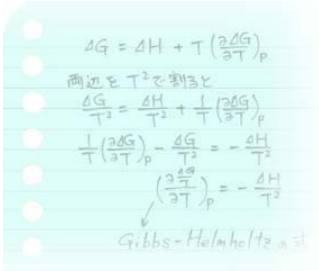 ΔG = ΔH + T(∂ΔG/∂T)p
両辺を T²で割ると
ΔG/T² = ΔH/T² + 1/T(∂ΔG/∂T)p
1/T(∂ΔG/∂T)p - ΔG/T² = - ΔH/T²
(∂ΔG/T/∂T)p = - ΔH/T²
Gibbs-Helmholtzの式